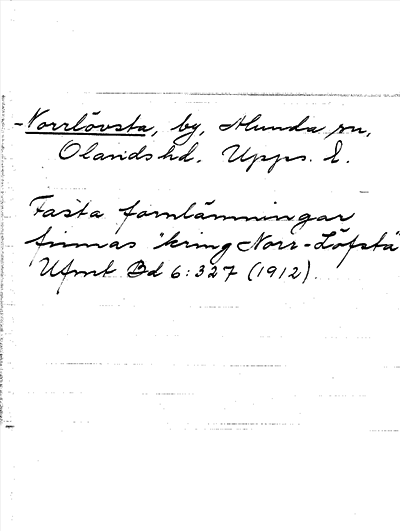 -Norrlövsta, by, Alunda sn,
Olands hd. Upps. l.
Fasta fornlämningar
finnas "kring Norr-Löfsta"
Ufmt Bd 6:327 (1912).